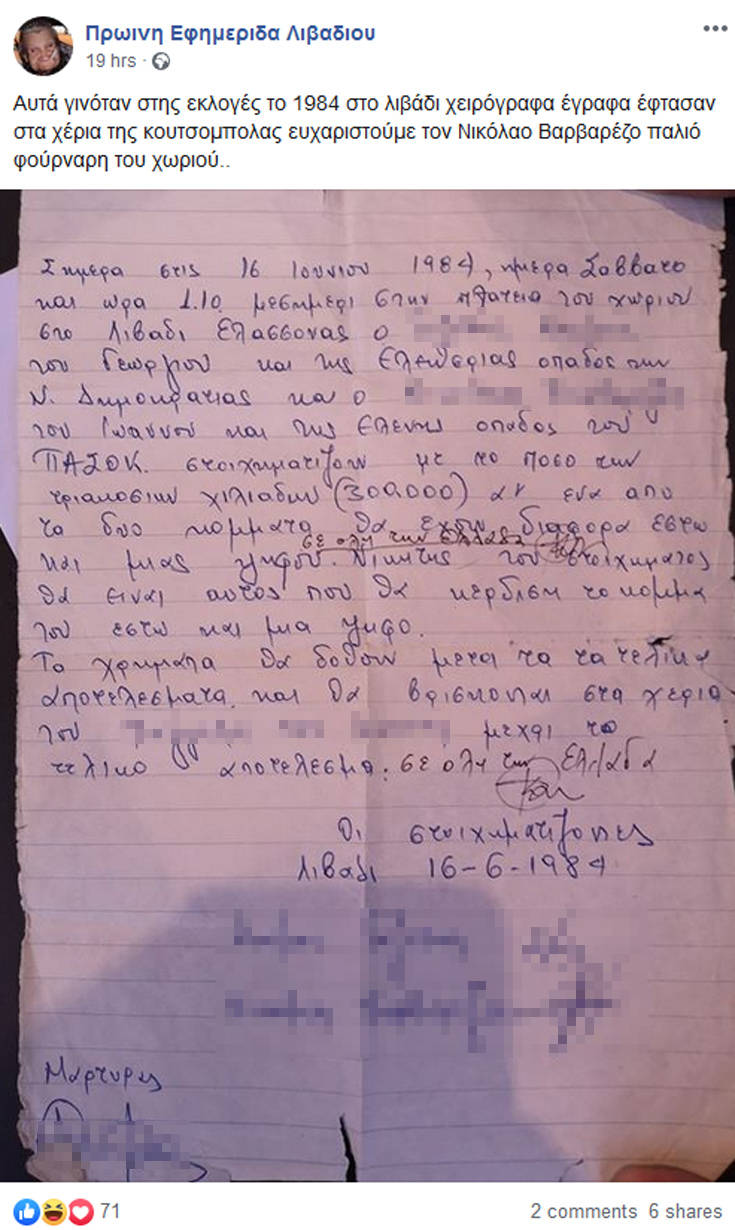 Πρωινη Εφημεριδα Λιβαδιου
19 hrs ·
Αυτά γινόταν στης εκλογές το 1984 στο λιβάδι χειρόγραφα έγραφα έφτασαν
στα χέρια της κουτσομπολας ευχαριστούμε τον Νικόλαο Βαρβαρέζο παλιό
φούρναρη του χωριού..
Σημερα στις 16 Ιουνιου 1984, ημερα Σαββατο
και ωρα 1.10 μεσημερι στην πλατεια του χωριου
στο Λιβαδι Ελασσονας ο
του Γεωργιου και της Ελευθεριας οπαδος της
Ν. Δημοκρατιας και ο
του Ιωαννου και της Ελενης οπαδος του
ΠΑΣΟΚ. στοιχηματιζουν με το ποσο των
τριακοσιων χιλιαδων (300.000) αν ενα απο
τα δυο κομματα θα εχουν διαφορα εστω
σε ολη την Ελλαδα
και μιας ψηφου. Νικητης του στοιχηματος
θα ειναι αυτος που θα κερδιση το κομμα
του εστω και μια ψηφο.
Τα χρηματα θα δοθουν μετα τα τα τελικα
αποτελεσματα και θα βρισκονται στα χερια
του μεχρι το
τελικο αποτελεσμα. σε ολη την Ελλαδα
Οι στοιχηματιζοντες
Λιβαδι 16-6-1984
Μαρτυρες
71
2 comments 6 shares